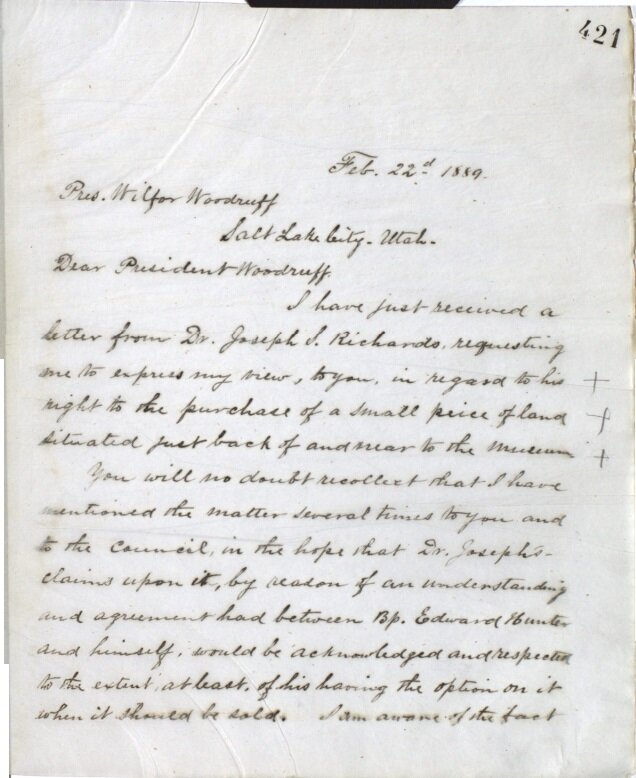 421
Feb. 22d 1889.
Pres. Wilfor Woodruff
Salt Lake City - Utah.
Dear President Woodruff
I have just received a
letter from Dr. Joseph S. Richards, requesting
me to express my view, to you, in regard to his +
right to the purchase of a small peice of land +
situated just back of and near to the museum +
You will no doubt recollect that I have
mentioned the matter several times to you and
to the council, in the hope that Dr. Joseph's-
claims upon it, by reason of an understanding
and agreement had between Bp. Edward Hunter
and himself, would be acknowledged and respected
to the extent, at least, of his having the option on it
when it should be sold. I am aware of the fact